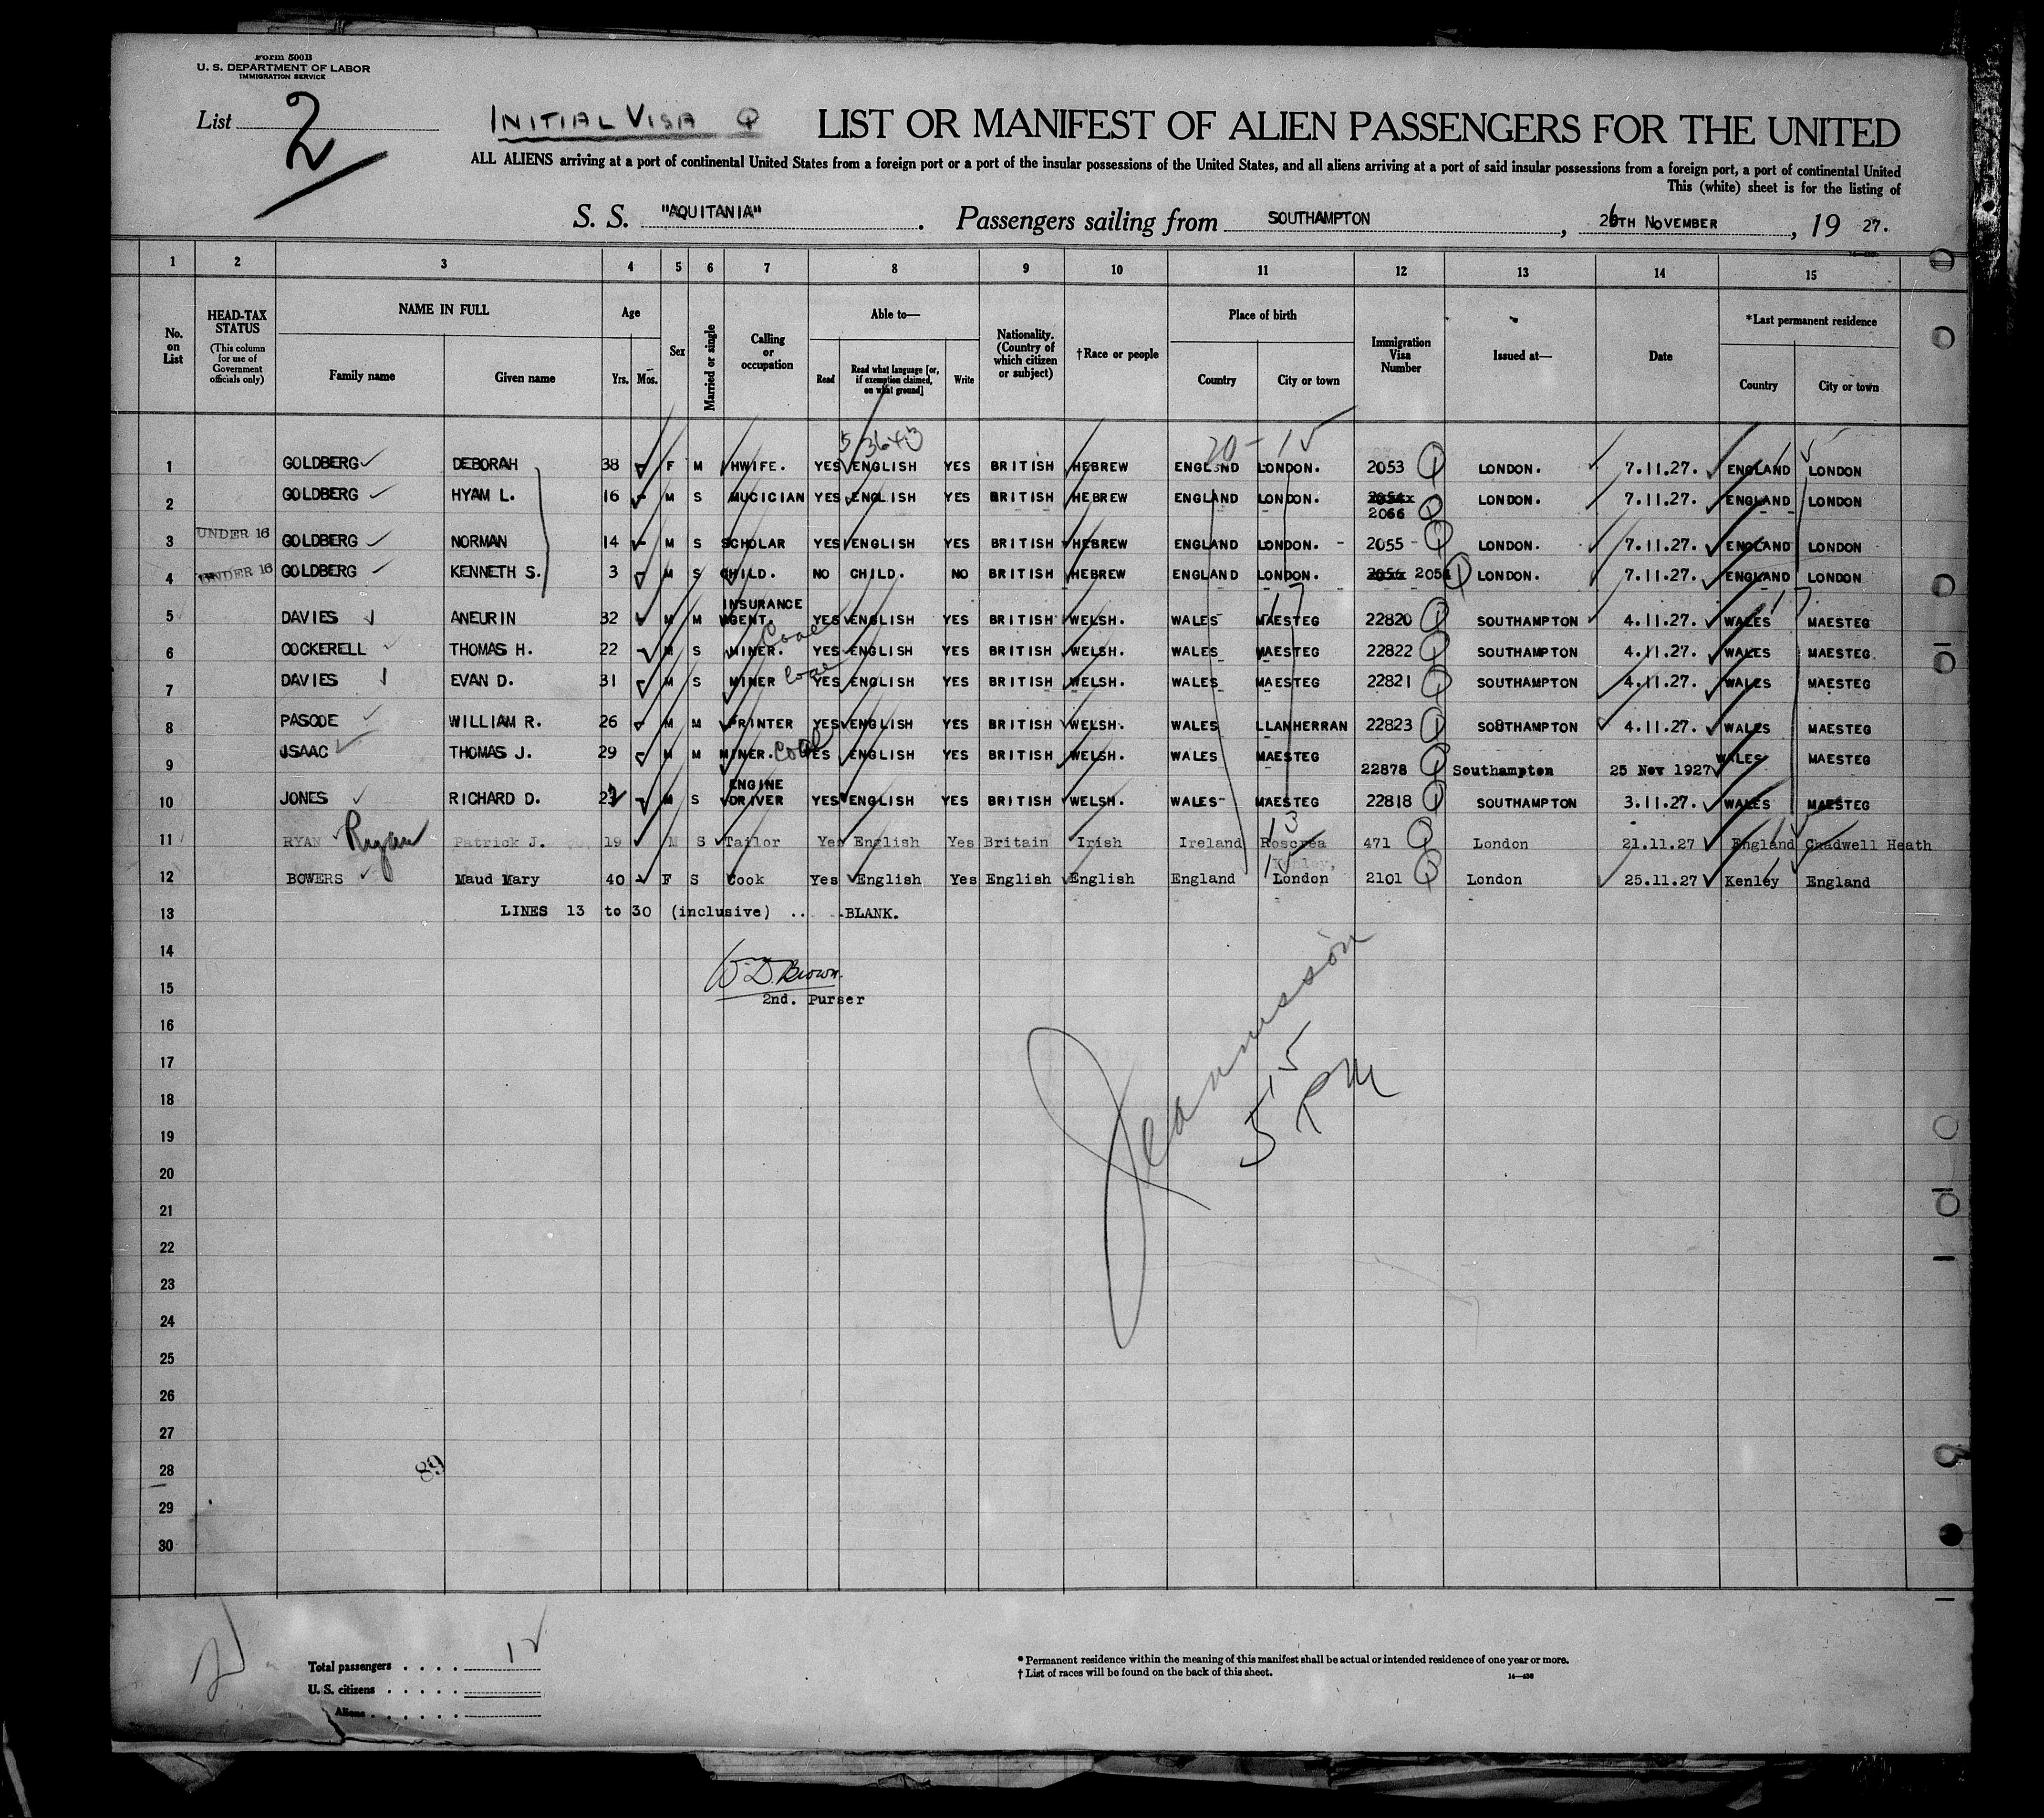 Form 500B
U. S. DEPARTMENT OF LABOR
IMMIGRATION SERVICE
List 2
INITIAL VISA Q
LIST OR MANIFEST OF ALIEN PASSENGERS FOR THE UNITED
ALL ALIENS arriving at a port of continental United States from a foreign port or a port of the insular possessions of the United States, and all aliens arriving at a port of said insular possessions from a foreign port, a port of continental United
This (white) sheet is for the listing of
S. S. "AQUITANIA". Passengers sailing from SOUTHAMPTON, 26TH NOVEMBER, 19 27.
1 2 3 4 5 6 7 8 9 10 11 12 13 14 15
No. on List
HEAD-TAX STATUS (This column for use of Government officials only)
NAME IN FULL
Family name Given name
Age
Yrs. Mos.
Sex
Married or single
Calling or occupation
Able to—
Read Read what language [or, if exemption claimed, on what ground] Write
Nationality. (Country of which citizen or subject)
†Race or people
Place of birth
Country City or town
Immigration Visa Number
Issued at—
Date
*Last permanent residence
Country City or town
5 3643
20 - 15
1 GOLDBERG DEBORAH 38 F M HWIFE. YES ENGLISH YES BRITISH HEBREW ENGLAND LONDON. 2053 Q LONDON. 7.11.27. ENGLAND LONDON
2 GOLDBERG HYAM L. 16 M S MUCICIAN YES ENGLISH YES BRITISH HEBREW ENGLAND LONDON. 2066 Q LONDON. 7.11.27. ENGLAND LONDON
3 UNDER 16 GOLDBERG NORMAN 14 M S SCHOLAR YES ENGLISH YES BRITISH HEBREW ENGLAND LONDON. 2055 Q LONDON. 7.11.27. ENGLAND LONDON
4 UNDER 16 GOLDBERG KENNETH S. 3 M S CHILD. NO CHILD. NO BRITISH HEBREW ENGLAND LONDON. Q LONDON. 7.11.27. ENGLAND LONDON
5 DAVIES ANEURIN 32 M M INSURANCE AGENT. YES ENGLISH YES BRITISH WELSH. WALES MAESTEG 22820 Q SOUTHAMPTON 4.11.27. WALES MAESTEG
6 COCKERELL THOMAS H. 22 M S MINER. Coal YES ENGLISH YES BRITISH WELSH. WALES MAESTEG 22822 Q SOUTHAMPTON 4.11.27. WALES MAESTEG.
7 DAVIES EVAN D. 31 M S MINER Coal YES ENGLISH YES BRITISH WELSH. WALES MAESTEG 22821 Q SOUTHAMPTON 4.11.27. WALES MAESTEG
8 PASCOE WILLIAM R. 26 M M PRINTER YES ENGLISH YES BRITISH WELSH. WALES LLANHERRAN 22823 Q SOUTHAMPTON 4.11.27. WALES MAESTEG
9 ISAAC THOMAS J. 29 M M MINER. Coal YES ENGLISH YES BRITISH WELSH. WALES MAESTEG 22878 Q Southampton 25 Nov 1927 WALES MAESTEG
10 JONES RICHARD D. 23 M S ENGINE DRIVER YES ENGLISH YES BRITISH WELSH. WALES MAESTEG 22818 Q SOUTHAMPTON 3.11.27. WALES MAESTEG
11 RYAN Ryan Patrick J. 19 M S Tailor Yes English Yes Britain Irish Ireland Roscrea 471 Q London 21.11.27 England Chadwell Heath
12 BOWERS Maud Mary 40 F S Cook Yes English Yes English English England London 2101 Q London 25.11.27 Kenley England
13 LINES 13 to 30 (inclusive) .. .BLANK.
14
Wm D. Brown.
15
2nd. Purser
16
17
18
5 15 PM
19
20
21
22
23
24
25
26
27
28
89
29
30
Total passengers . . . . 12
U. S. citizens . . . . .
Aliens . . . . . .
* Permanent residence within the meaning of this manifest shall be actual or intended residence of one year or more.
† List of races will be found on the back of this sheet.